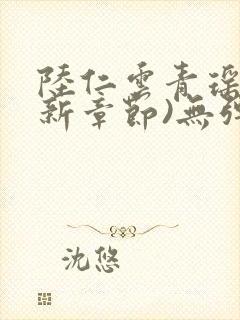 陸仁雲青瑶
新章節)無弹
沈悠